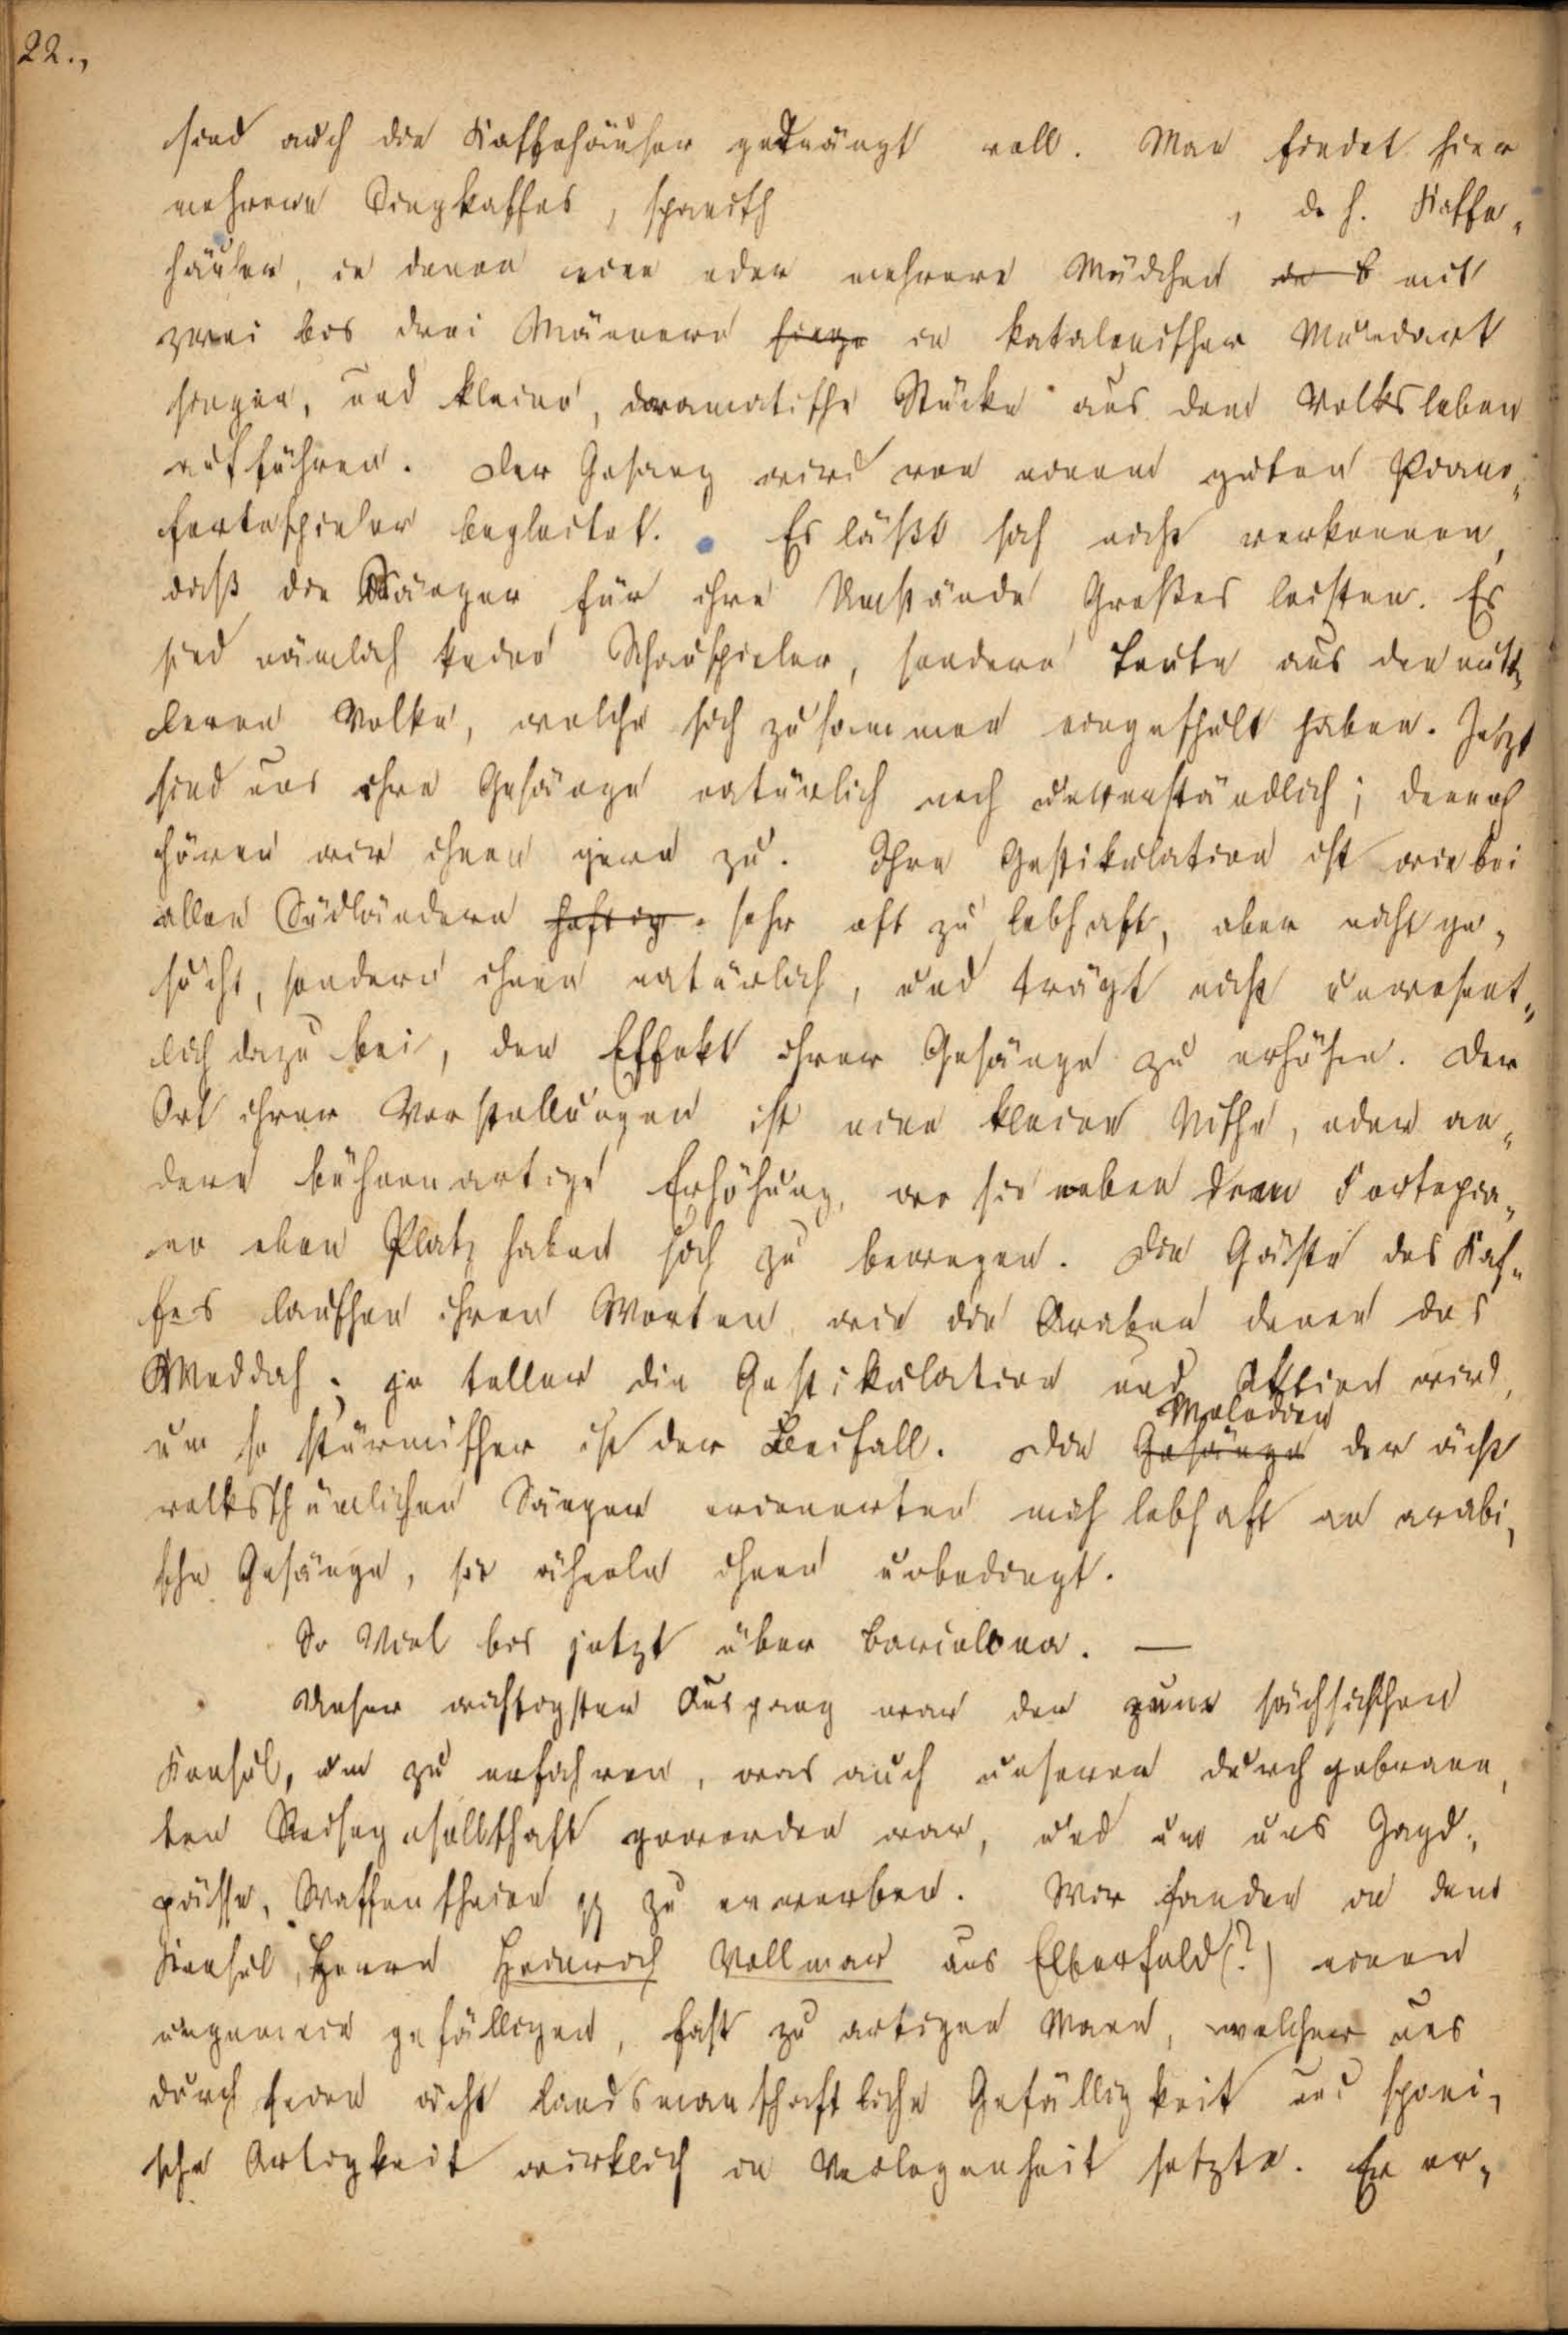 22.,
sind auch die Kaffehäuser gedrängt voll. Man findet hier
mehrere Singkaffes, spanisch , d. h. Kaffe„
häuser, in denen eine oder mehrere Mädchen mit
zwei bis drei Männern singe in katalonischer Mundart
singen, und kleine, dramatische Stücke aus dem Volksleben
aufführen. Der Gesang wird von einem guten Piano„
fortespieler begleitet. Es läßt sich nicht verkennen,
daß die Sänger für ihre Umstände Großes leisten. Es
sind nämlich keine Schauspieler, sondern Leute aus den mitt„
leren Volke, welche sich zusammen eingeschult haben. Jetzt
sind uns ihre Gesänge natürlich noch unverständlich; dennoch
hören wir ihnen gern zu. Ihre Gestikulation ist wie bei
allen Südländern heftig sehr oft zu lebhaft, aber nicht ge„
sucht, sondern ihnen natürlich, und trägt nicht unwesent„
lich dazu bei, den Effekt ihrer Gesänge zu erhöhen. Der
Ort ihrer Vorstellungen ist eine kleine Nische, oder an„
dere bühnenartige Erhöhung, wo sie neben dem Fortepia„
no eben Platz haben sich zu bewegen. Die Gäste des Kaf„
fes lauschen ihren Worten wie die Araber denen des
Meddah; je toller die Gestikulation und Aktion wird,
um so stürmischer ist der Beifall. Die Gesänge Melodien der ächt
volksthümlichen Sänger erinnerten mich lebhaft an arabi„
sche Gesänge, sie ähneln ihnen unbedingt.
So Viel bis jetzt über Barcelona. —
Unser wichtigster Ausgang war der zum sächsischen
Konsul, um zu erfahren, was aus unserer durchgebrann„
ten Reisegesellschaft geworden war, und um uns Jagd„
pässe, Waffenscheine zu erwerben. Wir fanden in dem
Konsul, Herrn Heinrich Vollmar aus Elberfeld(?) einen
ungemein gefälligen, fast zu artigen Mann, welcher uns
durch seine ächt landsmanschaftliche Gefälligkeit und spani„
sche Artigkeit wirklich in Verlegenheit setzte. Er er„